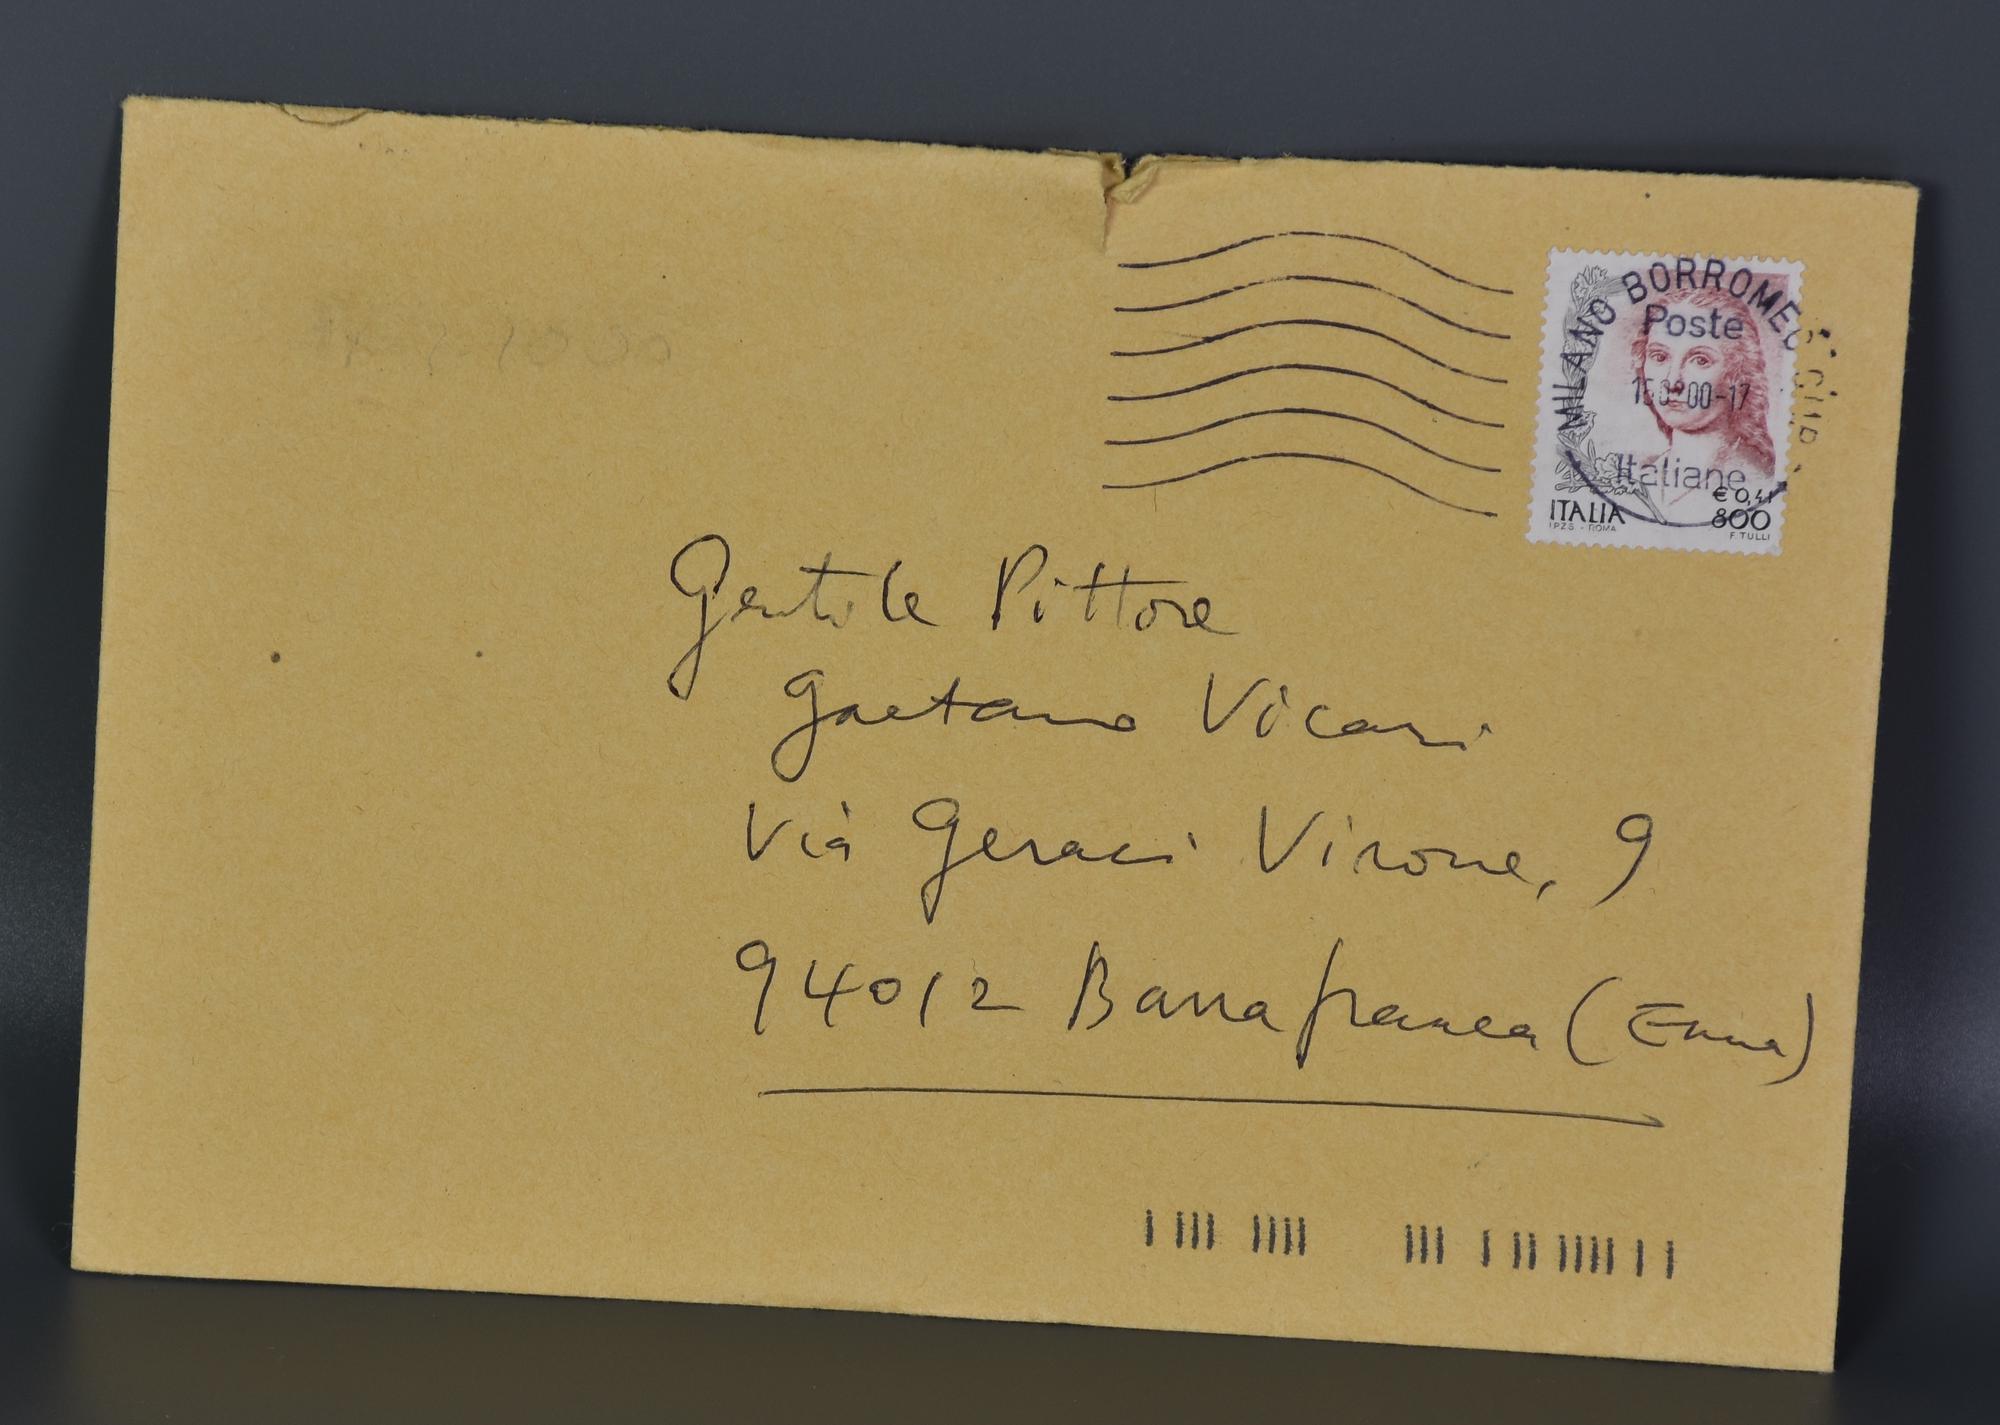 MILANO BORROMEO
Poste
Italiane
€ 0,41
ITALIA 800
I.P.Z.S. - ROMA F. TULLI
Gentile Pittore
Gaetano Vicari
Via Geraci Virone, 9
94012 Barrafranca (Enna)